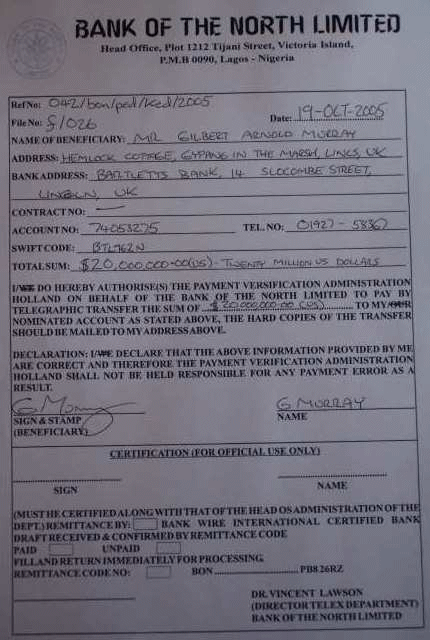 BANK OF THE NORTH LIMITED
Head Office, Plot 1212 Tijani Street, Victoria Island,
P.M.B 0090, Lagos - Nigeria
Ref No: 042/bon/ped/ked/2005
File No: f/026
Date: 19-OCT-2005
NAME OF BENEFICIARY: MR GILBERT ARNOLD MURRAY
ADDRESS: HEMLOCK COTTAGE, GYPANG IN THE MARSH, LINCS, UK
BANK ADDRESS: BARTLETTS BANK, 14 SLOCOMBE STREET,
LINCOLN, UK
CONTRACT NO: —
ACCOUNT NO: 74053275 TEL. NO: 01927-58367
SWIFT CODE: BTL762N
TOTAL SUM: $20,000,000-00 (US) - TWENTY MILLION US DOLLARS
I/WE DO HEREBY AUTHORISE(S) THE PAYMENT VERSIFICATION ADMINISTRATION
HOLLAND ON BEHALF OF THE BANK OF THE NORTH LIMITED TO PAY BY
TELEGRAPHIC TRANSFER THE SUM OF $20,000,000-00 (US) TO MY/OUR
NOMINATED ACCOUNT AS STATED ABOVE, THE HARD COPIES OF THE TRANSFER
SHOULD BE MAILED TO MY ADDRESS ABOVE.
DECLARATION: I/WE DECLARE THAT THE ABOVE INFORMATION PROVIDED BY ME
ARE CORRECT AND THEREFORE THE PAYMENT VERIFICATION ADMINISTRATION
HOLLAND SHALL NOT BE HELD RESPONSIBLE FOR ANY PAYMENT ERROR AS A
RESULT.
G Murray G MURRAY
SIGN & STAMP NAME
(BENEFICIARY)
CERTIFICATION (FOR OFFICIAL USE ONLY)
SIGN NAME
(MUST HE CERTIFIED ALONG WITH THAT OF THE HEAD OS ADMINISTRATION OF THE
DEPT.) REMITTANCE BY: BANK WIRE INTERNATIONAL CERTIFIED BANK
DRAFT RECEIVED & CONFIRMED BY REMITTANCE CODE
PAID UNPAID
FILL AND RETURN IMMEDIATELY FOR PROCESSING.
REMITTANCE CODE NO: BON PB8 26RZ
DR. VINCENT LAWSON
(DIRECTOR TELEX DEPARTMENT)
BANK OF THE NORTH LIMITED